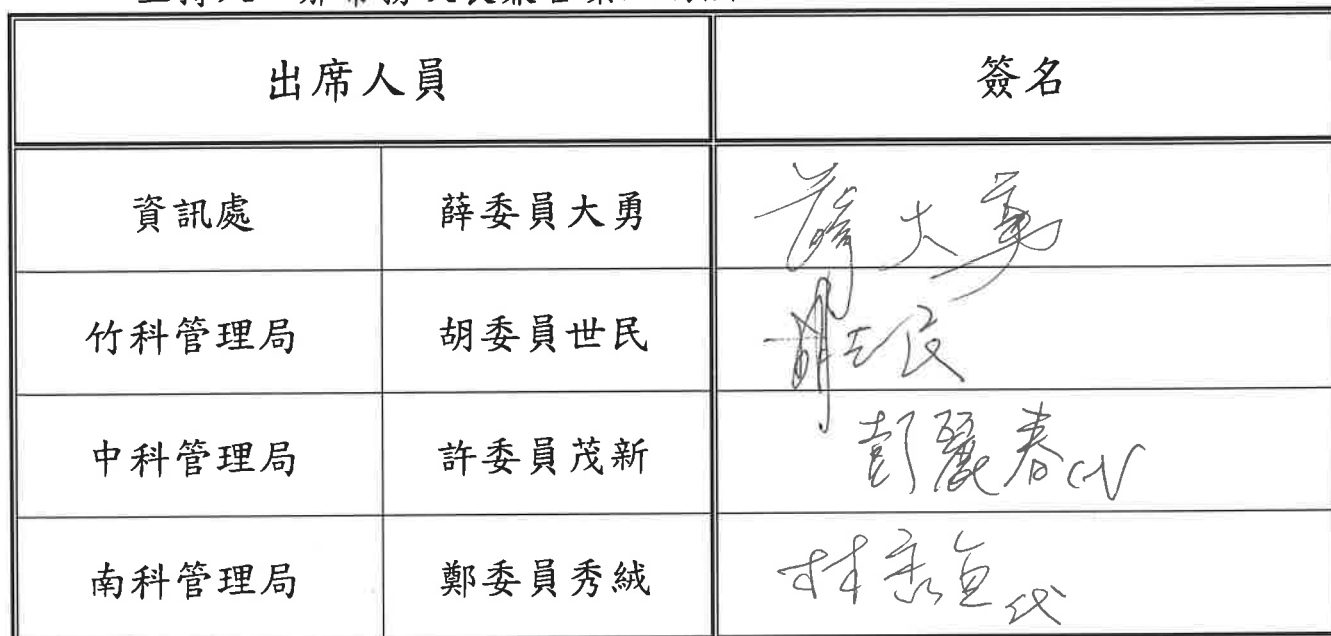 出席人員 簽名
資訊處 薛委員大勇 薛大勇
竹科管理局 胡委員世民 胡世民
中科管理局 許委員茂新 彭麗春代
南科管理局 鄭委員秀絨 林秀貞代